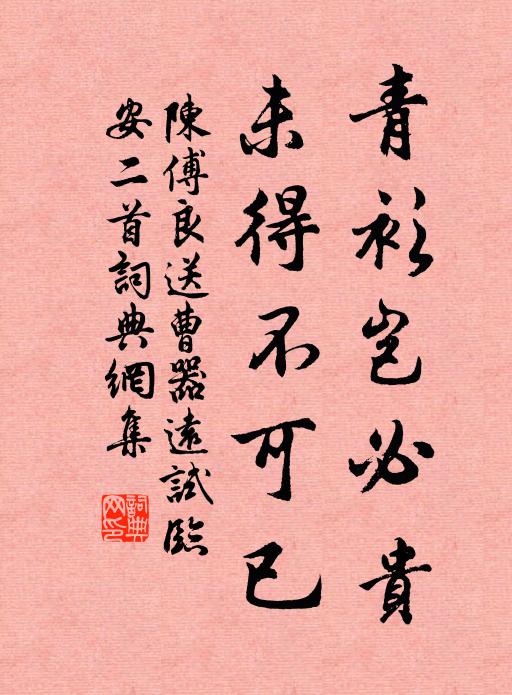 青衫豈必貴
未得不可已
陳傅良送曹器遠試臨
安二首詞典網集
詞典
网印